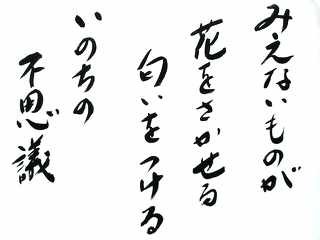 みえないものが
花をさかせる
匂いをつける
いのちの
不思議